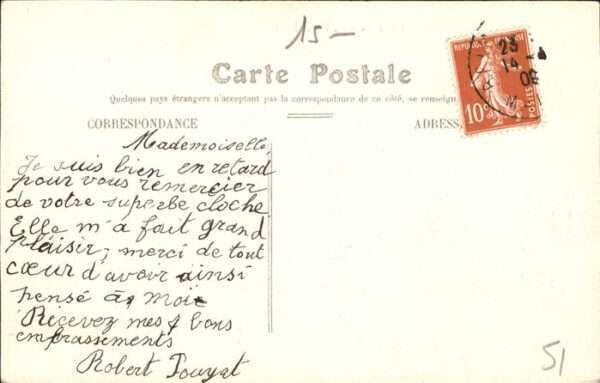 15-
Carte Postale
Quelques pays étrangers n'acceptant pas la correspondance de ce côté, se renseign
CORRESPONDANCE
ADRESS
REPUBLIQUE FRANÇAISE
POSTES
10c
23
14 -4
09
Mademoiselle,
Je suis bien en retard
pour vous remercier
de votre superbe cloche
Elle m'a fait grand
plaisir; merci de tout
cœur d'avoir ainsi
pensé à moi
Recevez mes bons
embrassements
Robert Pouyat
51